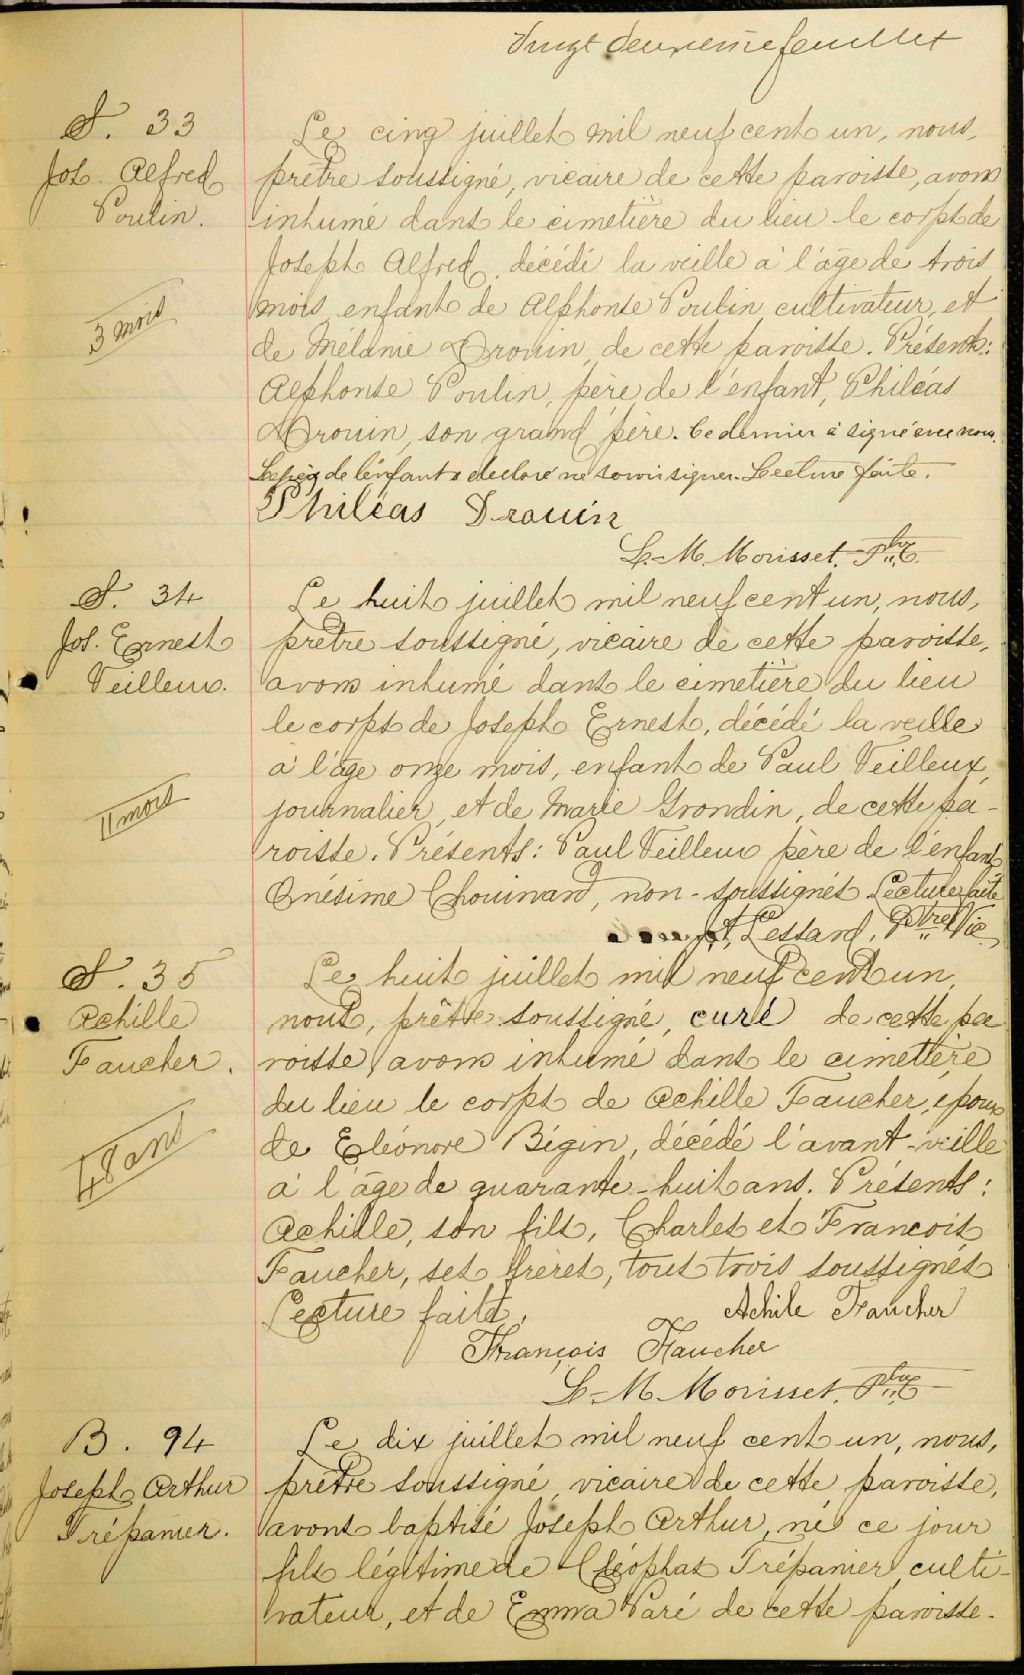 Vingt deuxième feuillet
S. 33
Jos. Alfred
Poulin.
3 mois
Le cinq juillet mil neuf cent un, nous,
prêtre soussigné, vicaire de cette paroisse, avons
inhumé dans le cimetière du lieu le corps de
Joseph Alfred, décédé la veille à l'âge de trois
mois, enfant de Alphonse Poulin, cultivateur, et
de Mélanie Drouin, de cette paroisse. Présents:
Alphonse Poulin, père de l'enfant, Philéas
Drouin, son grand'père. Ce dernier a signé avec nous.
Le père de l'enfant a déclaré ne savoir signer. Lecture faite.
Philéas Drouin
L.-M. Morisset, Ptre
S. 34
Jos. Ernest
Veilleux.
11 mois
Le huit juillet mil neuf cent un, nous,
prêtre soussigné, vicaire de cette paroisse,
avons inhumé dans le cimetière du lieu
le corps de Joseph Ernest, décédé la veille
à l'âge onze mois, enfant de Paul Veilleux,
journalier, et de Marie Grondin, de cette pa-
roisse. Présents: Paul Veilleux père de l'enfant
Onésime Chouinard, non-soussignés Lecture faite
Lessard, Ptre Vic.
S. 35
Achille
Faucher.
48 ans
Le huit juillet mil neuf cent un,
nous, prêtre soussigné, curé de cette pa
roisse, avons inhumé dans le cimettère
du lieu le corps de Achille Faucher, époux
de Eléonore Bégin, décédé l'avant-veille
à l'âge de quarante-huit ans. Présents:
Achille, son fils, Charles et François
Faucher, ses frères, tous trois soussignés
Lecture faite.
Achile Faucher
François Faucher
L-M. Morisset, Ptre
B. 94
Joseph Arthur
Trépanier.
Le dix juillet mil neuf cent un, nous,
prêtre soussigné, vicaire de cette paroisse,
avons baptisé Joseph Arthur, né ce jour
fils légitime de Cléophas Trépanier, culti-
vateur, et de Emma Paré de cette paroisse.